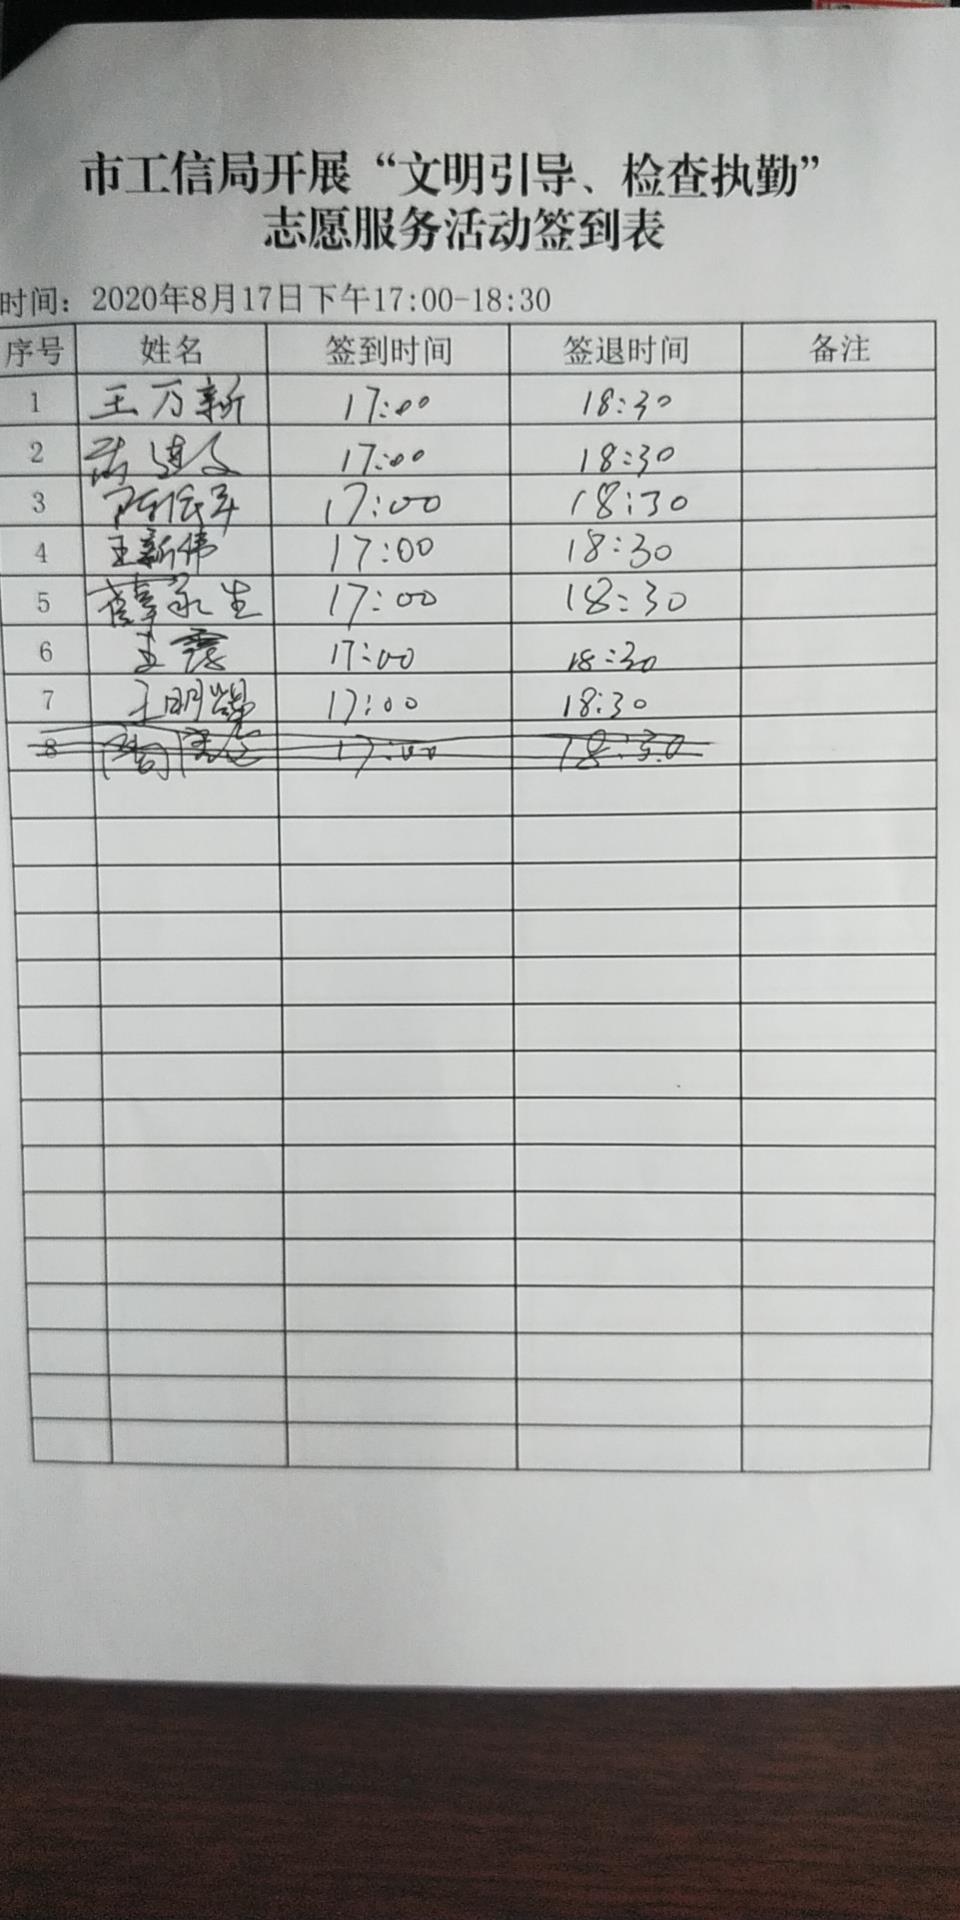 市工信局开展“文明引导、检查执勤”
志愿服务活动签到表
时间：2020年8月17日下午17:00-18:30
序号 姓名 签到时间 签退时间 备注
1 王万新 17:00 18:30
2 17:00 18:30
3 17:00 18:30
4 王新伟 17:00 18:30
5 薛永生 17:00 18:30
6 王霞 17:00 18:30
7 王明 17:00 18:30
8 17:00 18:30